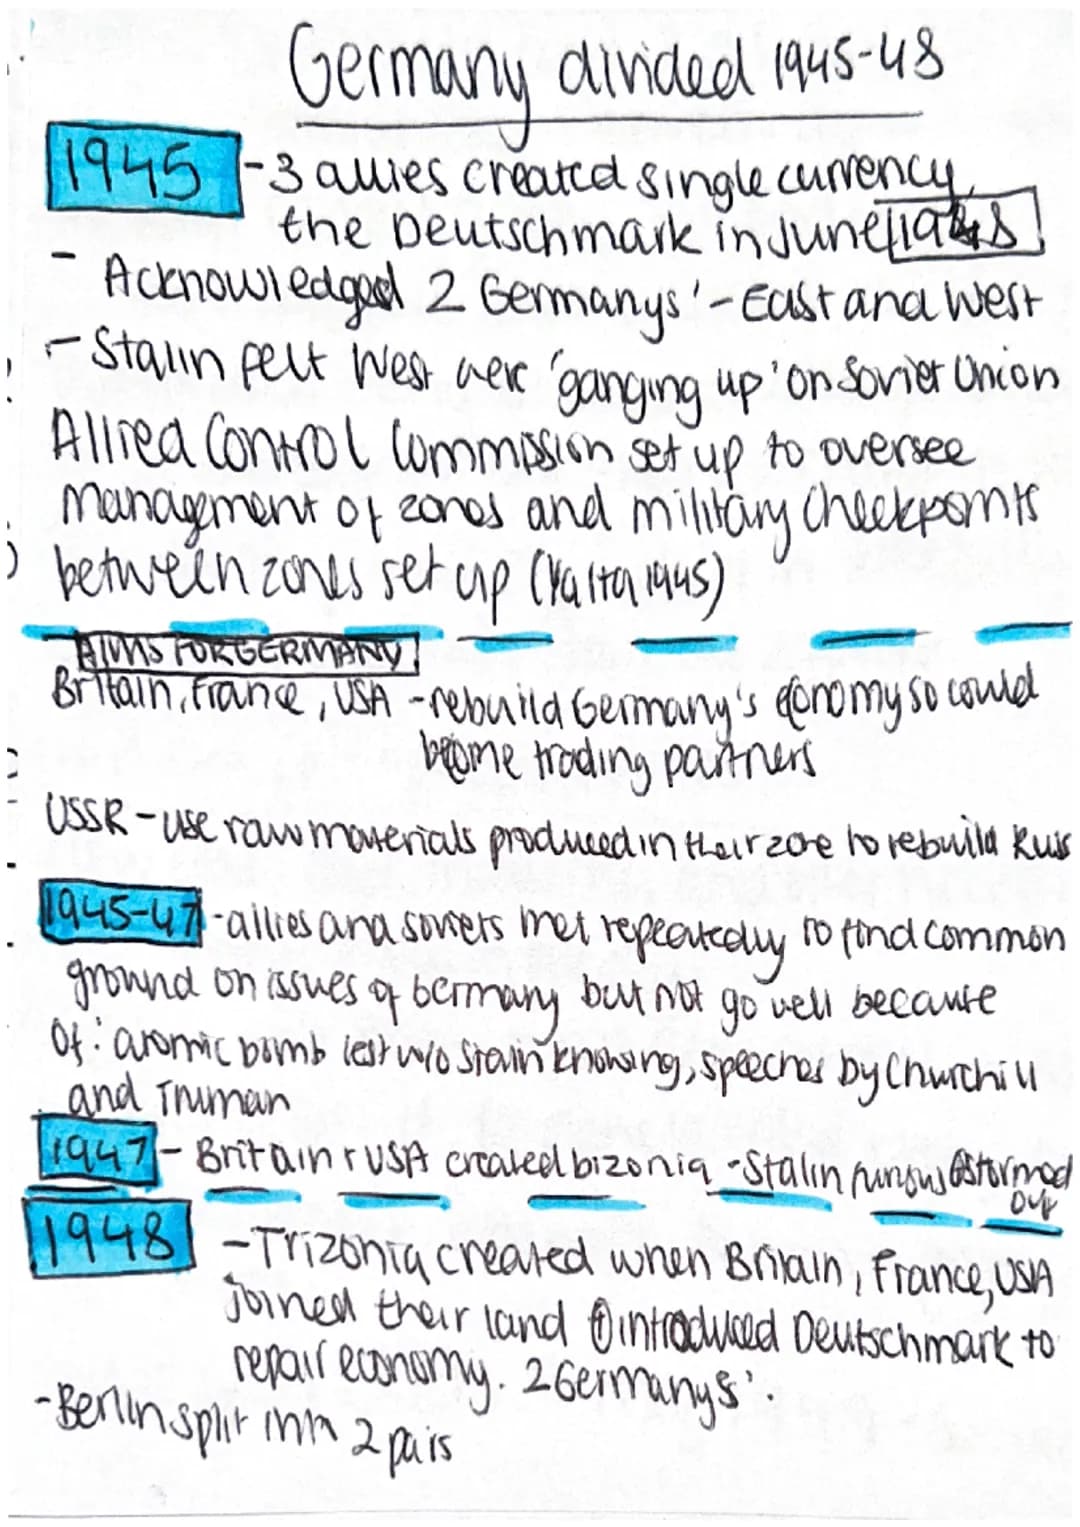 Germany divided 1945-48
1945 - 3 allies created single currency,
the Deutschmark in June 1948
- Acknowledged 2 Germanys' - East and West
- Stalin felt West were 'ganging up' on Soviet Union
Allied Control Commission set up to oversee
management of zones and military checkpoints
between zones set up (Yalta 1945)
AIMS FOR GERMANY
Britain, France, USA - rebuild Germany's economy so could
become trading partners
USSR - use raw materials produced in their zone to rebuild Russ
1945-47 - allies and soviets met repeatedly to find common
ground on issues of Germany but not go well because
of: atomic bomb test w/o Stalin knowing, speeches by Churchill
and Truman
1947 - Britain + USA created bizonia - Stalin furious & stormed
out
1948 - Trizonia created when Britain, France, USA
joined their land & introduced Deutschmark to
repair economy. 2 Germanys'.
- Berlin split into 2 pairs